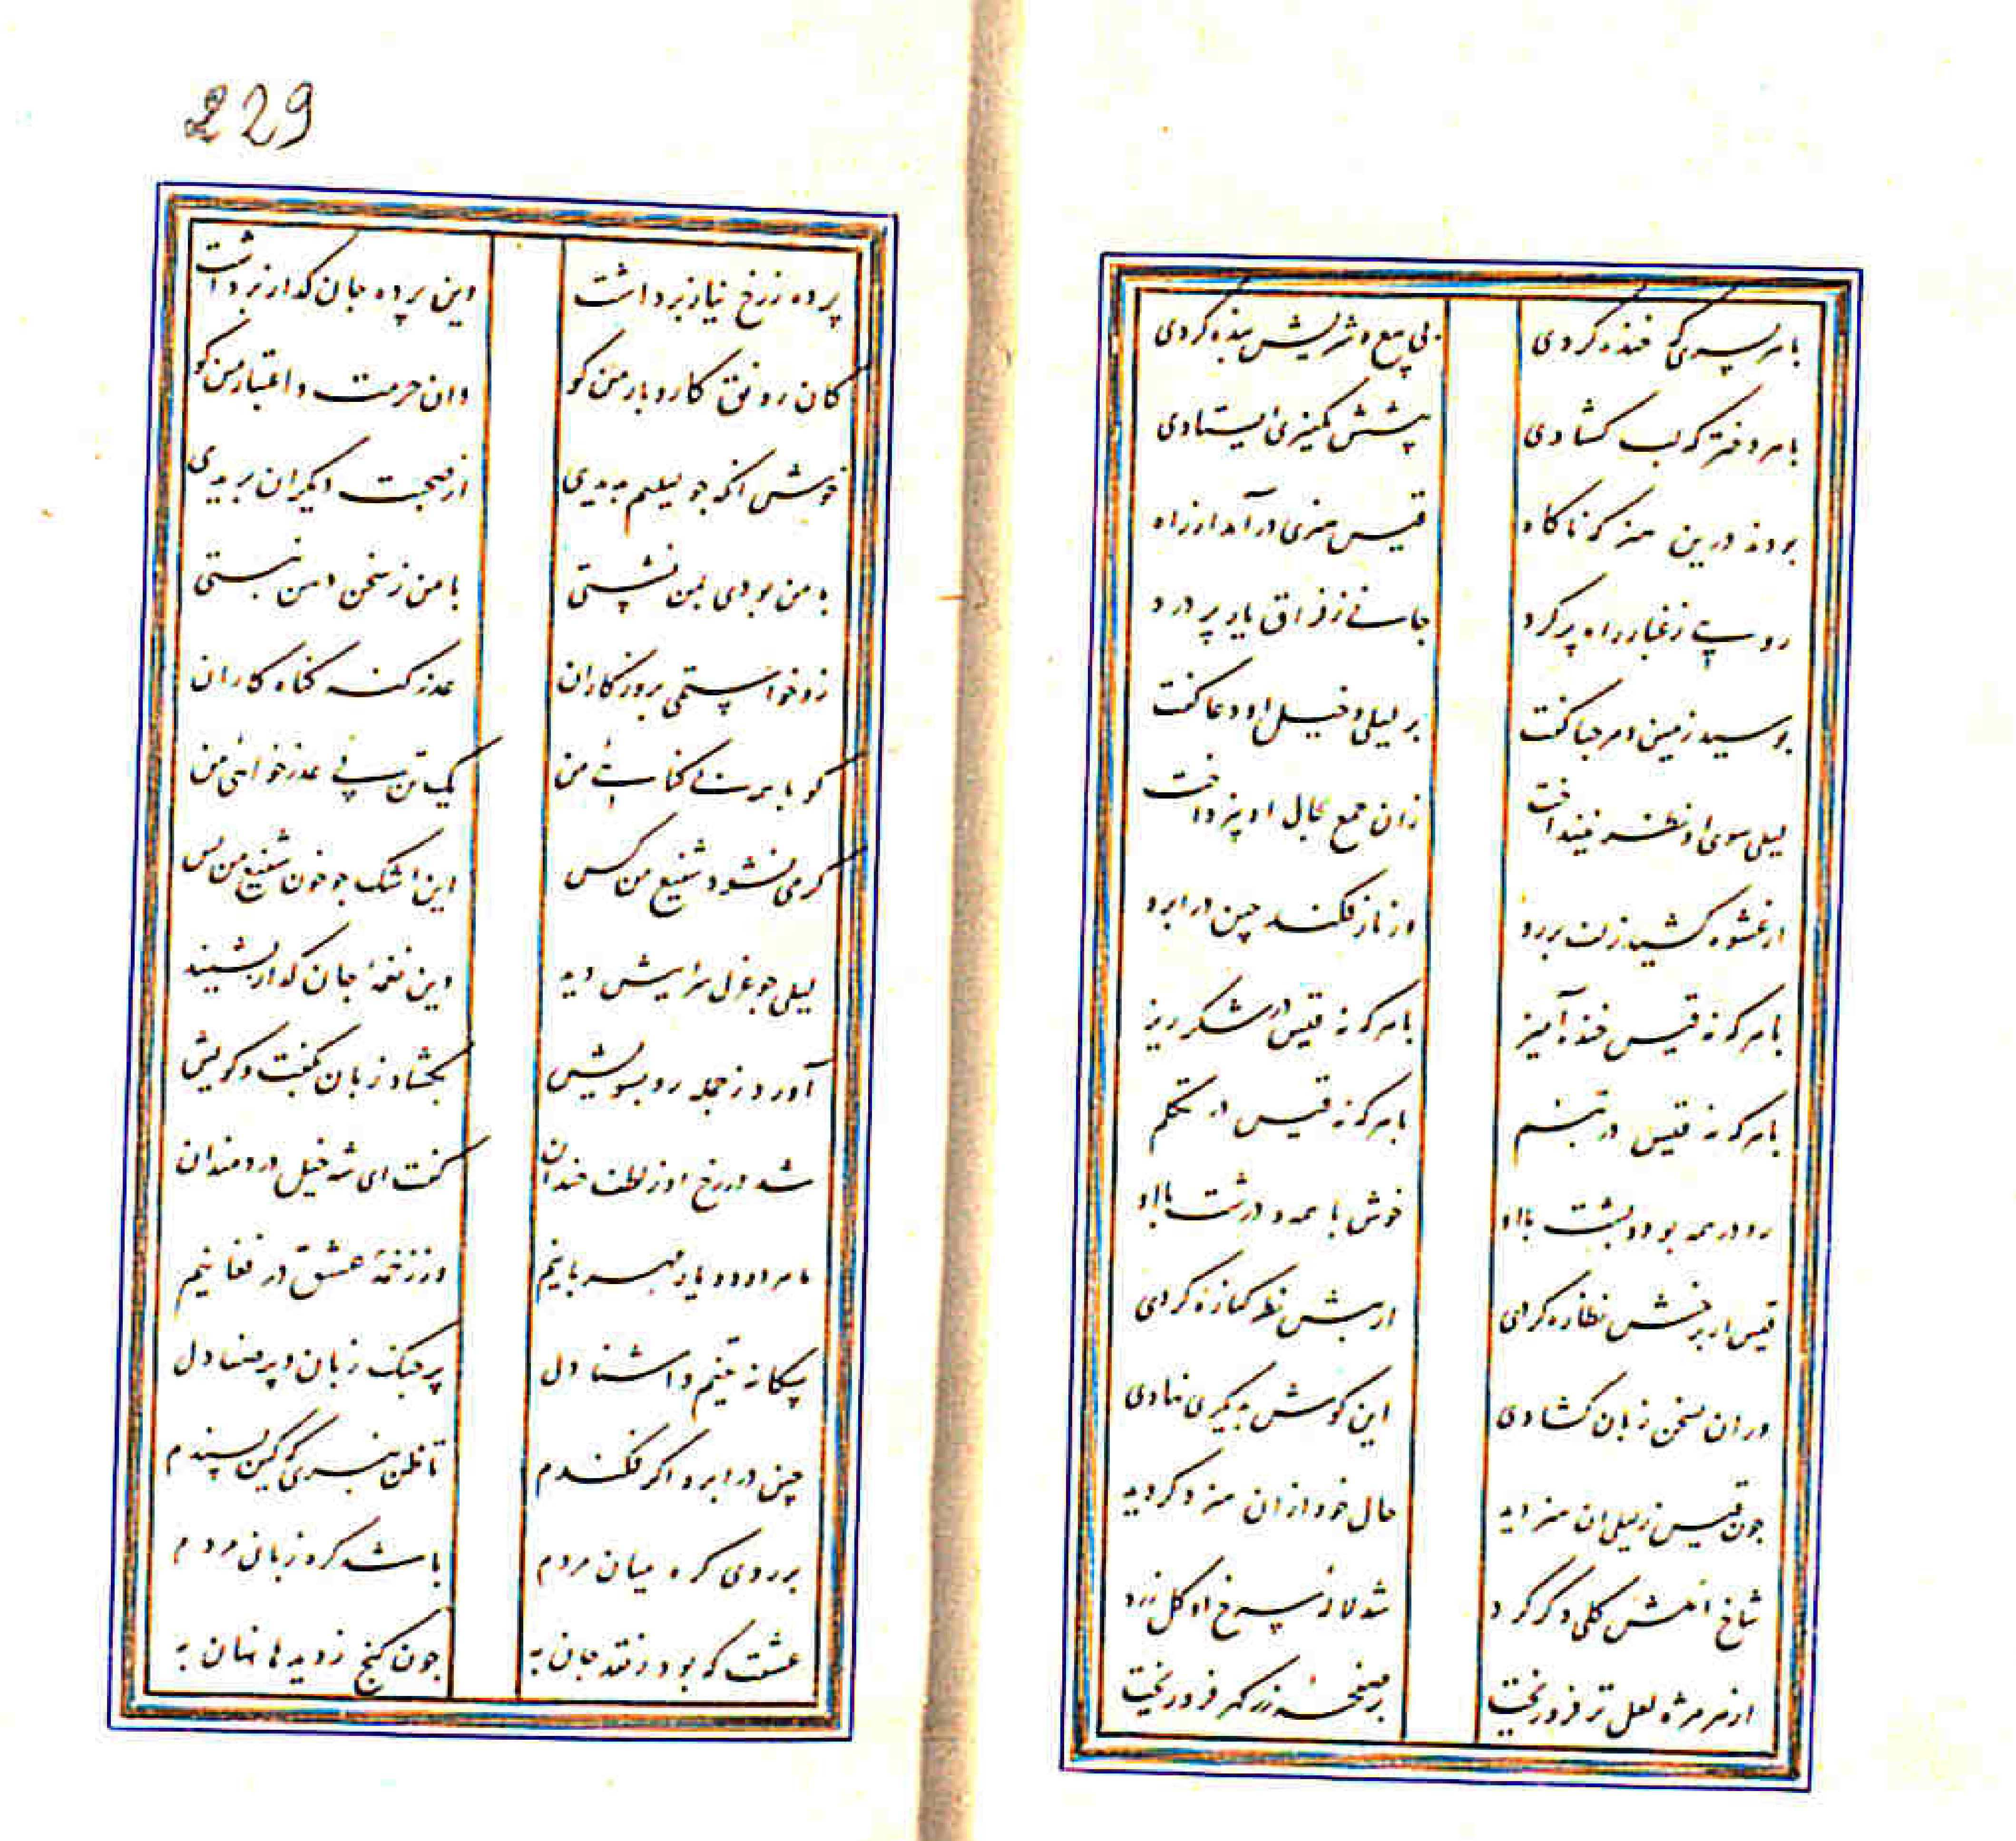 با هر پسری که خنده کردی
بی بیع و شریش بنده کردی
با هر دختر که لب کشادی
پیشش بکنیزی ایستادی
بودند درین هنر که ناکاه
قیس هنری درآمد از راه
رویی ز غبار راه پر کرد
جانی ز فراق یار پر درد
بوسید زمین و مرحبا کفت
بر لیلی و خیل او دعا کفت
لیلی سوی او نظر نینداخت
زان جمع بحال او نپرداخت
از عشوه کشید زلف بر رو
وز ناز فکند چین در ابرو
با هر که نه قیس خنده آمیز
با هر که نه قیس در شکر ریز
با هر که نه قیس در تبسم
با هر که نه قیس در تکلم
رو در همه بود و پشت با او
خوش با همه و درشت با او
قیس ار برخش نظاره کردی
از پیش نظر کناره کردی
ور آن بسخن زبان کشادی
این کوش بدیکری نهادی
چون قیس ز لیلی آن هنر دید
حال خود ازان هنر دکر دید
شاخ املش کلی دکر کرد
شد لاله سرخ او کل زرد
از هر مژه لعل تر فرو ریخت
بر صفحه زر کهر فرو ریخت
229
پرده ز رخ نیاز برداشت
وین پرده جان کداز برداشت
کان رونق کار و بار من کو
وان حرمت و اعتبار من کو
خوش آنکه چو لیلیم بدیدی
از صحبت دیکران بریدی
با من بودی بمن نشستی
با من ز سخن دهن نبستی
زو خواستمی بروزکاران
عذر کنه کناه کاران
کو با همه بی کناهی من
یک تن پی عذرخواهی من
کر می نشود شفیع من کس
این اشک چو خون شفیع من بس
لیلی چو غزل سراییش دید
وین نغمه جان کداز بشنید
آورد ز جمله رو بسویش
بکشاد زبان بکفت و کویش
شد در رخ او ز لطف خندان
کفت ای شه خیل دردمندان
ما هر دو دو یار مهربانیم
وز زخمه عشق در فغانیم
بیکانه نییم و آشنا دل
پر جنک زبان و پر صفا دل
چین در ابرو اکر فکندم
تا ظن نبری که کین پسندم
بر روی کره میان مردم
باشد کره زبان مردم
عشقت که بود ز نقد جان به
چون کنج ز دیده ها نهان به